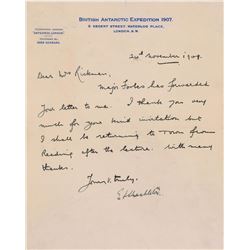 BRITISH ANTARCTIC EXPEDITION 1907.
9 REGENT STREET, WATERLOO PLACE,
LONDON, S.W.
24th November 1909.
Dear Mrs Rickman,
Major Forbes has forwarded
your letter to me. I thank you very
much for your kind invitation but
I shall be returning to Town from
Reading after the lecture. With many
thanks.
Yours v. truly,
EHShackleton